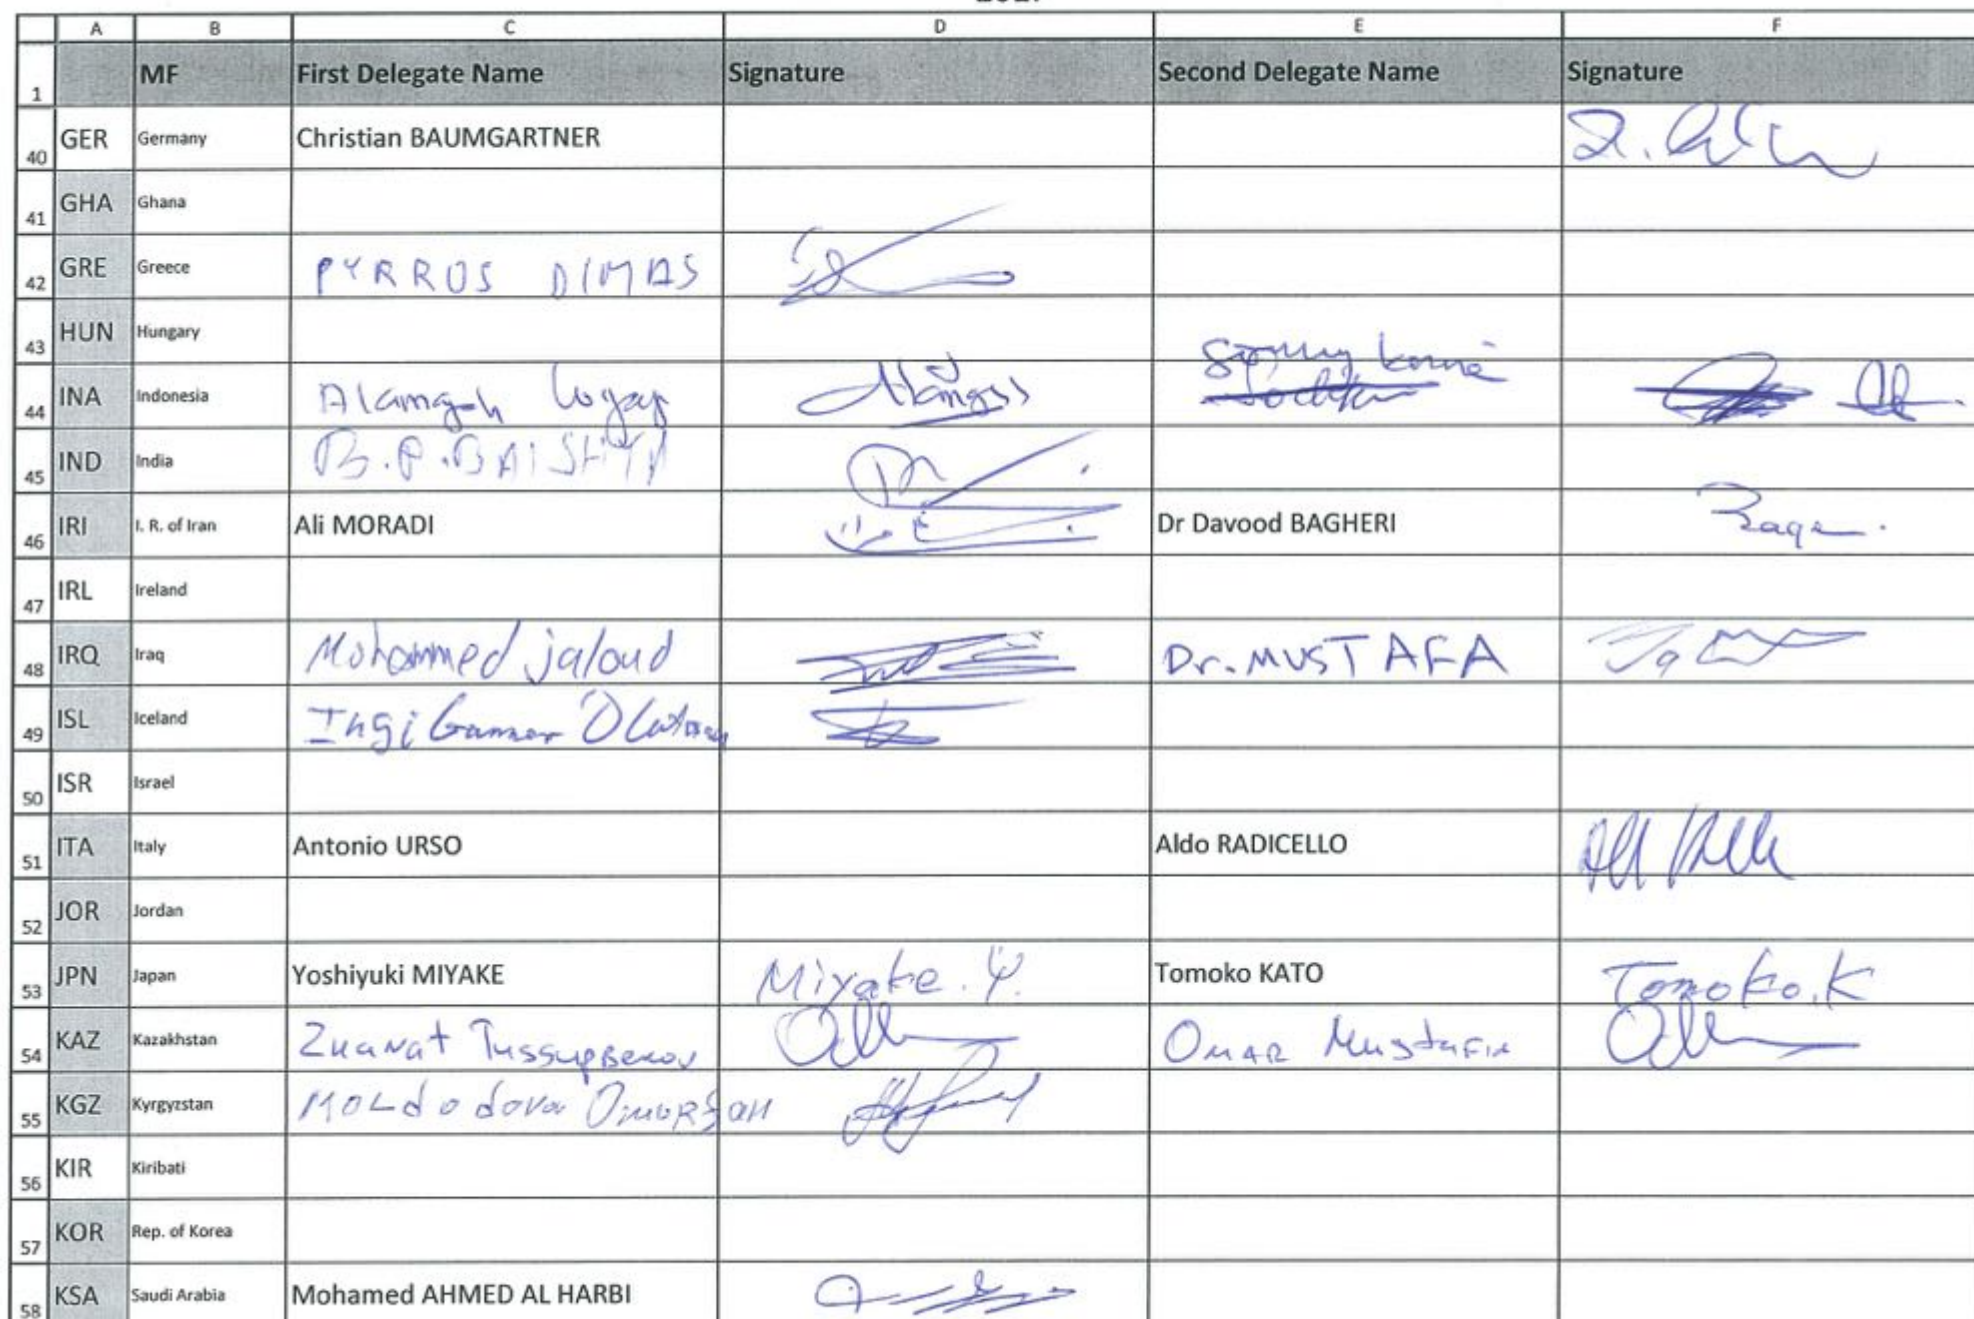 A B C D E F
1 MF First Delegate Name Signature Second Delegate Name Signature
40 GER Germany Christian BAUMGARTNER
41 GHA Ghana
42 GRE Greece PYRROS DIMAS
43 HUN Hungary
44 INA Indonesia
45 IND India B.P.BAISHYA
46 IRI I. R. of Iran Ali MORADI Dr Davood BAGHERI
47 IRL Ireland
48 IRQ Iraq Mohammed jaloud Dr. MUSTAFA
49 ISL Iceland Ingi
50 ISR Israel
51 ITA Italy Antonio URSO Aldo RADICELLO
52 JOR Jordan
53 JPN Japan Yoshiyuki MIYAKE Miyake.Y. Tomoko KATO Tomoko.K
54 KAZ Kazakhstan Zhanat Omar Mustafin
55 KGZ Kyrgyzstan
56 KIR Kiribati
57 KOR Rep. of Korea
58 KSA Saudi Arabia Mohamed AHMED AL HARBI